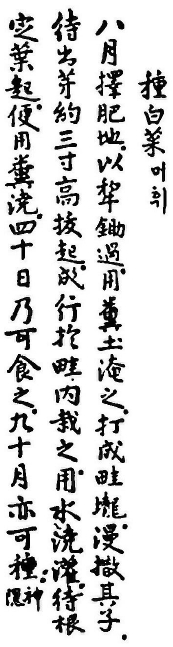 種白菜머휘
八月擇肥地.以犂鋤過.用糞土淹之.打成畦壠.漫撒其子.
待出芽約三寸高拔起.成行於畦內栽之.用水澆灌.待根
定葉起.便用糞澆.四十日乃可食之.九十月亦可種.神隱